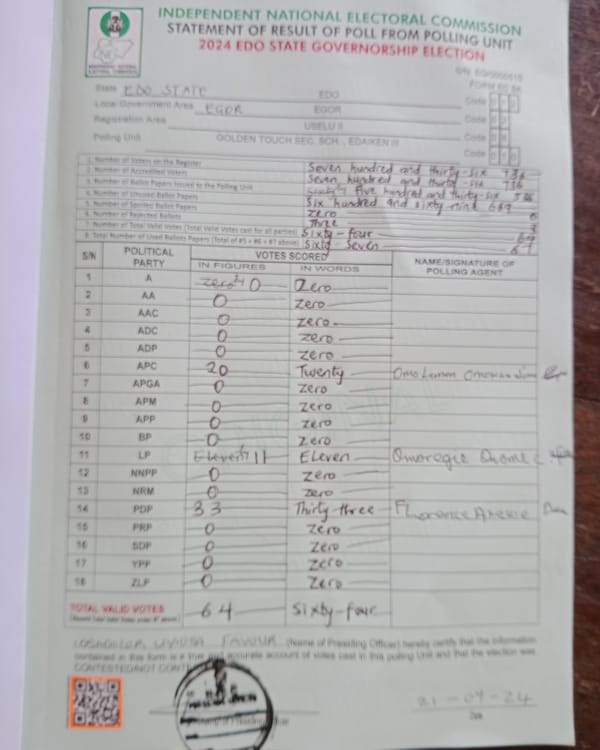 INDEPENDENT NATIONAL ELECTORAL COMMISSION
STATEMENT OF RESULT OF POLL FROM POLLING UNIT
2024 EDO STATE GOVERNORSHIP ELECTION
State EDO STATE EDO Code
Local Government Area EGOR EGOR Code
Registration Area USELU II Code
Polling Unit GOLDEN TOUCH SEC. SCH., EDAIKEN III Code
1. Number of Voters on the Register Seven hundred and thirty-six 736
2. Number of Accredited Voters
3. Number of Ballot Papers Issued to the Polling Unit Seven hundred and thirty-six 736
4. Number of Unused Ballot Papers Six hundred and sixty nine 669
5. Number of Spoiled Ballot Papers Zero 0
6. Number of Rejected Ballots Three 3
7. Number of Total Valid Votes (Total Valid Votes cast for all parties) Sixty-four 64
8. Total Number of Used Ballots Papers (Total of #5 + #6 + #7 above) Sixty-Seven 67
S/N POLITICAL PARTY VOTES SCORED NAME/SIGNATURE OF POLLING AGENT
IN FIGURES IN WORDS
1 A zero 0 Zero
2 AA 0 Zero
3 AAC 0 Zero
4 ADC 0 Zero
5 ADP 0 Zero
6 APC 20 Twenty
7 APGA 0 Zero
8 APM 0 Zero
9 APP 0 Zero
10 BP 0 Zero
11 LP Eleven 11 Eleven Omoregie
12 NNPP 0 Zero
13 NRM 0 Zero
14 PDP 33 Thirty three Florence
15 PRP 0 Zero
16 SDP 0 Zero
17 YPP 0 Zero
18 ZLP 0 Zero
TOTAL VALID VOTES 64 Sixty-four
FAVOUR (Name of Presiding Officer) hereby certify that the information
contained in this form is a true and accurate account of votes cast in this polling Unit and that the election was
CONTESTED/NOT
21-09-24
Date